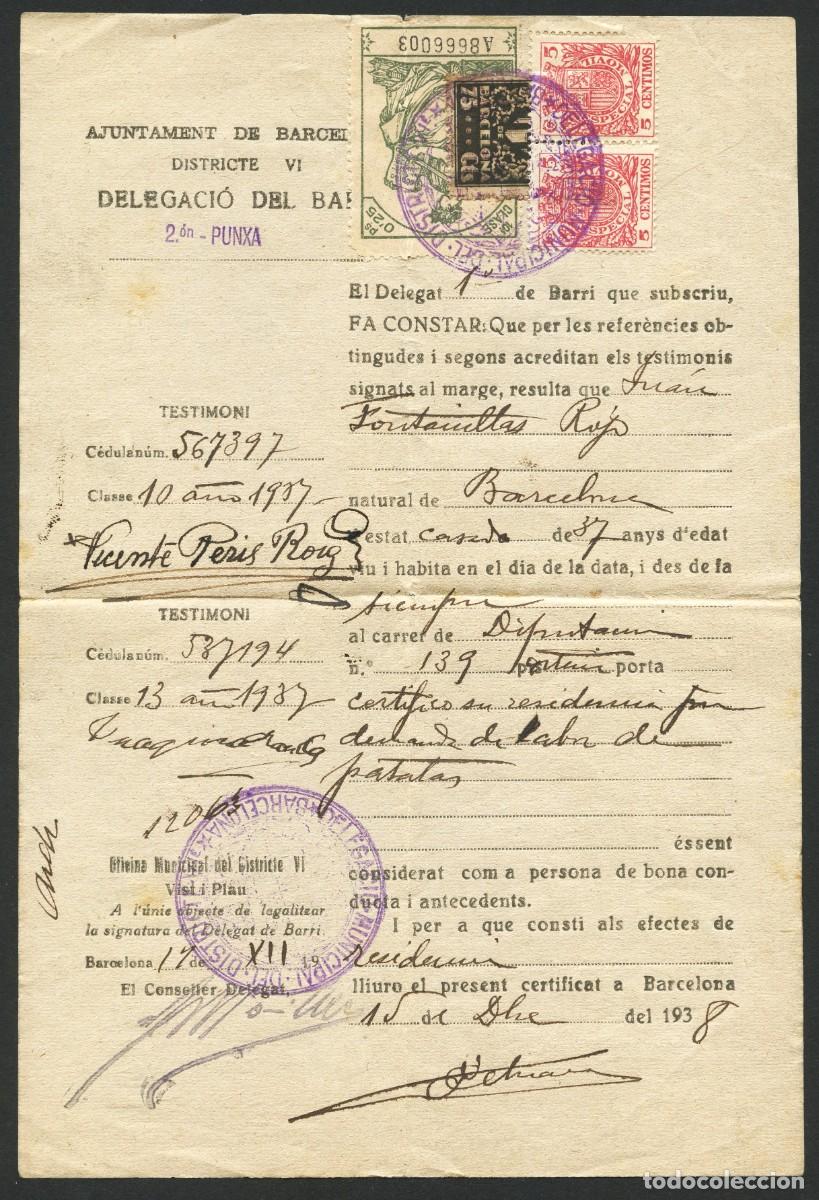 A8666003
5 CENTIMOS
MOVIL
ESPECIAL
5 CENTIMOS
MOVIL
ESPECIAL
BARCELONA
75 CTS
10ª CLASE
0'25
AJUNTAMENT DE BARCEL
DISTRICTE VI
DELEGACIÓ DEL BAR
2.ón - PUNXA
El Delegat 1 de Barri que subscriu,
FA CONSTAR: Que per les referències ob-
tingudes i segons acreditan els testimonis
signats al marge, resulta que Juán
Fontanillas Rojo
natural de Barcelona
d'estat casado de 37 anys d'edat
viu i habita en el dia de la data, i des de fa
siempre
al carrer de Diputacion
n.º 139 porta
certifico su residencia por
de de
patatas
éssent
considerat com a persona de bona con-
ducta i antecedents.
I per a que consti als efectes de
residencia
lliuro el present certificat a Barcelona
15 de Dbre del 1938
TESTIMONI
Cédula núm. 567397
Classe 10 año 1937
Vicente Peris Roig
TESTIMONI
Cédula núm. 587194
Classe 13 año 1937
12063
Oficina Municipal del Districte VI
Vist i Plau
A l'únic objecte de legalitzar
la signatura del Delegat de Barri.
Barcelona 17 de XII 19
El Conseller Delegat,
DELEGACIÓ MUNICIPAL DEL DISTRICTE VI BARCELONA
todocoleccion